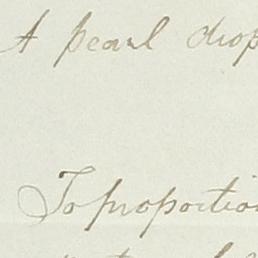 A pearl drop
To proportion